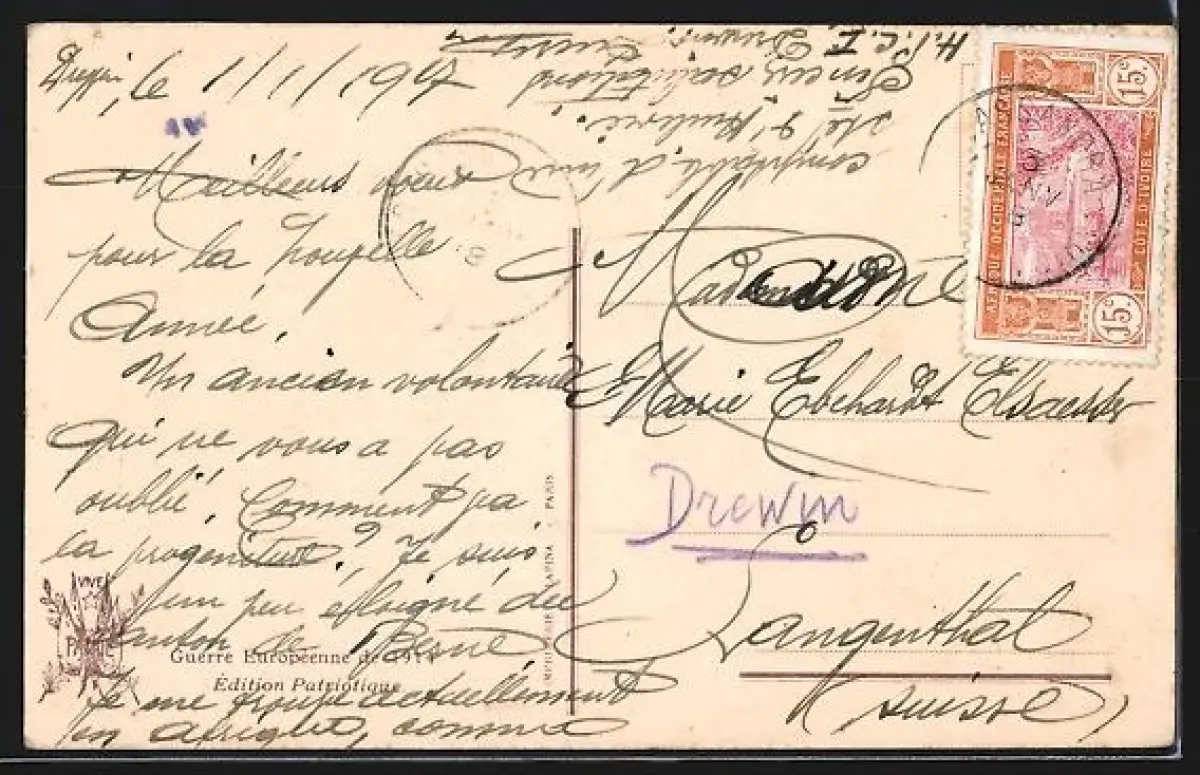 le 1/1/1917
Meilleurs voeux
pour la nouvelle
Année.
Un ancien volontaire
qui ne vous a pas
oublié. Comment va
la progeniture? Je suis
un peu éloigné du
Canton de Berne
Je me trouve actuellement
en Afrique, comme
comptable d'une
Sté d'
Sincères salutations
Madame
Marie Ebehardt Elsaesser
Drewin
Langenthal
(Suisse)
AFRIQUE OCCIDENTALE FRANÇAISE
CÔTE D'IVOIRE
15c
15c
VIVE
LA
FRANCE
Guerre Européenne de 1914
Édition Patriotique
PARIS